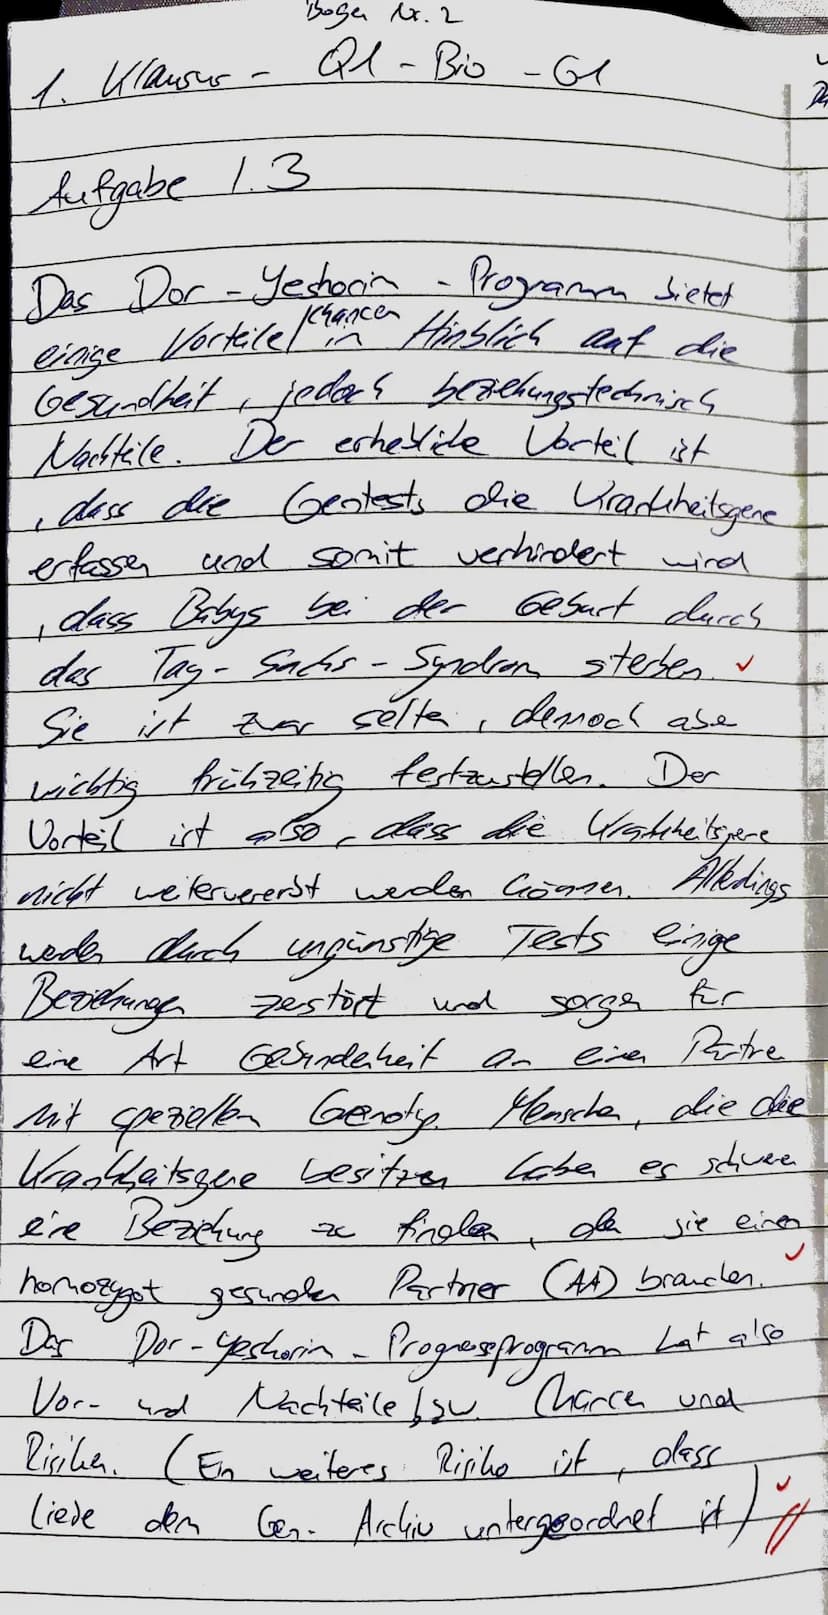 Bogen Nr. 2
1. Klausur - Q1 - Bio - G1
Aufgabe 1.3
Das Dor - Yeshorim - Programm bietet
einige Vorteile/Chancen in Hinblick auf die
Gesundheit, jedoch beziehungstechnisch
Nachteile. Der erhebliche Vorteil ist
, dass die Gentests die Krankheitsgene
erfassen und somit verhindert wird
, dass Babys bei der Geburt durch
das Tay - Sachs - Syndrom sterben.
Sie ist zwar selten, dennoch aber
wichtig frühzeitig festzustellen. Der
Vorteil ist also, dass die Krankheitsgene
nicht weitervererbt werden können. Allerdings
werden durch ungünstige Tests einige
Beziehungen zerstört und sorgen für
eine Art Gebundenheit an einen Partner
mit speziellem Genotyp. Menschen, die die
Krankheitsgene besitzen haben es schwer
eine Beziehung zu finden, da sie einen
homozygot gesunden Partner (AA) brauchen.
Das Dor - Yeshorim - Prognoseprogramm hat also
Vor- und Nachteile bzw. Chancen und
Risiken. (Ein weiteres Risiko ist, dass
Liebe dem Gen- Archiv untergeordnet ist)